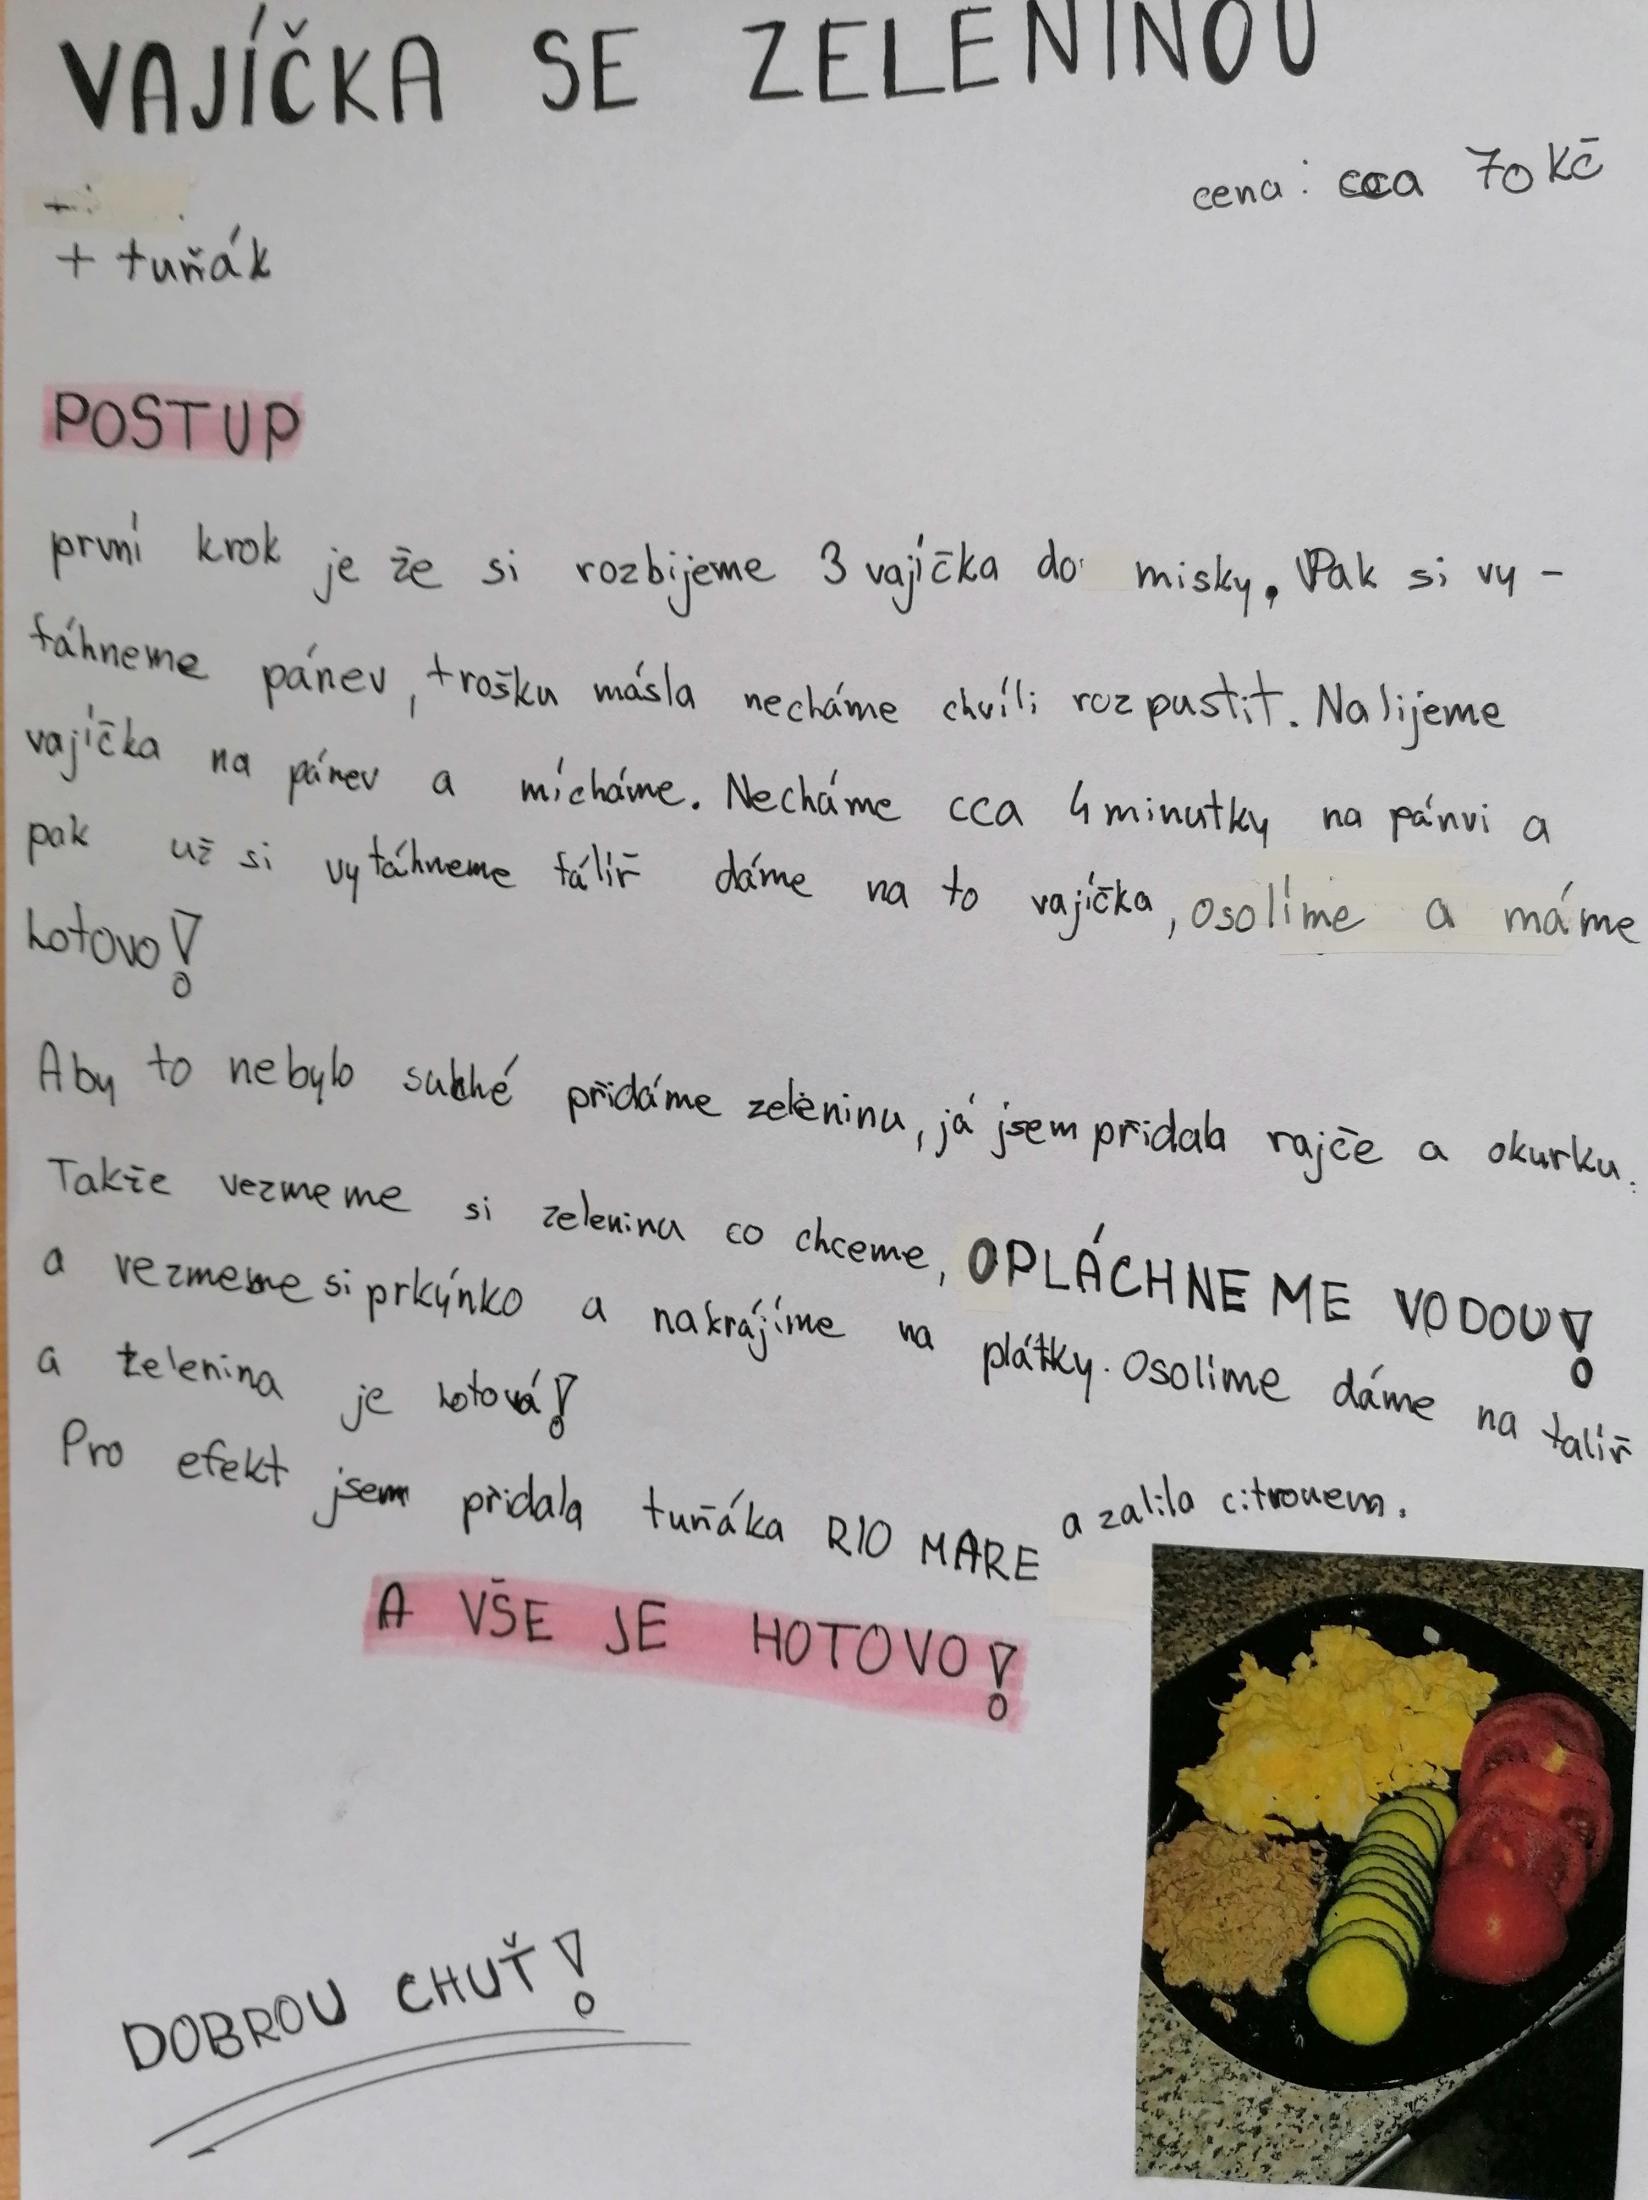 VAJÍČKA SE ZELENINOU
cena: cca 70 Kč
+ tuňák
POSTUP
první krok je že si rozbijeme 3 vajíčka do misky. Pak si vy-
táhneme pánev, trošku másla necháme chvíli rozpustit. Nalijeme
vajíčka na pánev a mícháme. Necháme cca 4 minutky na pánvi a
pak už si vytáhneme tálíř dáme na to vajíčka, osolíme a máme
hotovo!
Aby to nebylo suché přidáme zeleninu, já jsem přidala rajče a okurku.
Takže vezmeme si zeleninu co chceme, OPLÁCHNEME VODOU!
a vezmeme si prkýnko a nakrájíme na plátky. Osolíme dáme na talíř
a zelenina je hotová!
Pro efekt jsem přidala tuňáka RIO MARE a zalila citronem.
A VŠE JE HOTOVO!
DOBROU CHUŤ!